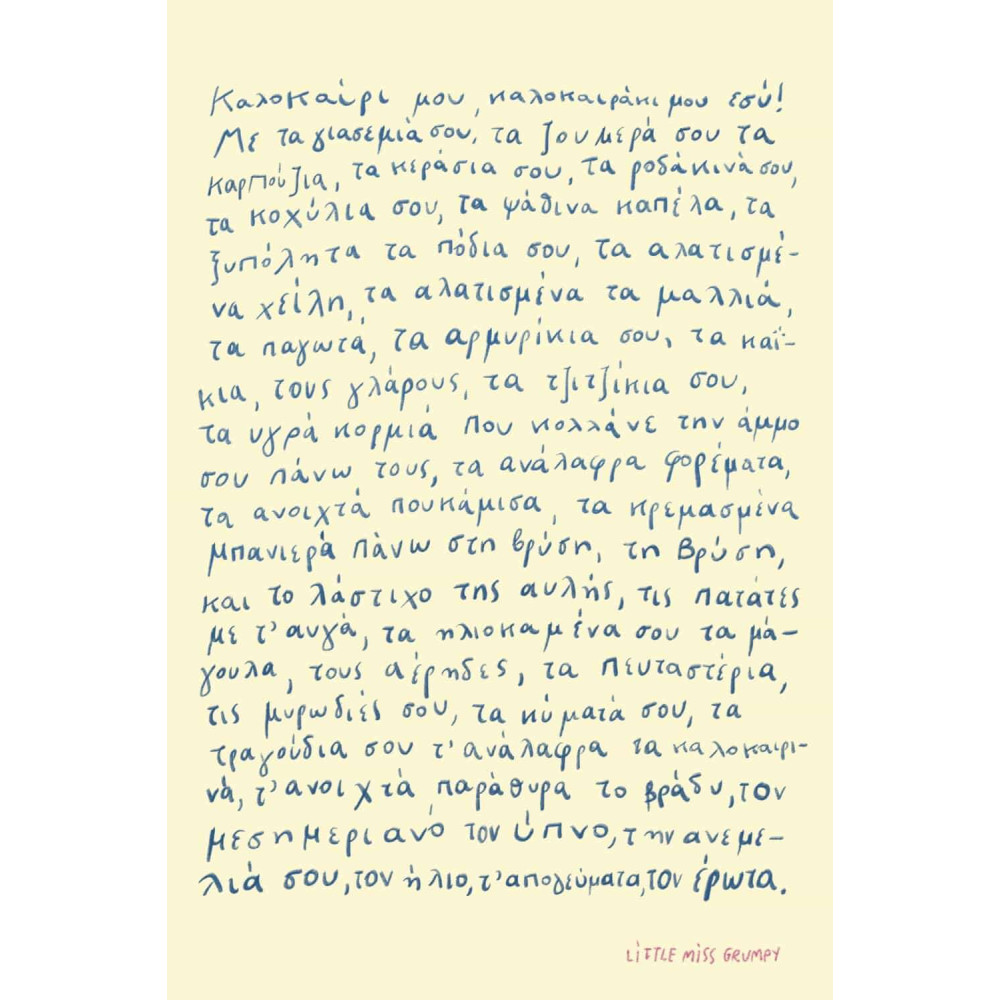 Καλοκαίρι μου, καλοκαιράκι μου εσύ!
Με τα γιασεμιά σου, τα ζουμερά σου τα
καρπούζια, τα κεράσια σου, τα ροδάκινά σου,
τα κοχύλια σου, τα ψάθινα καπέλα, τα
ξυπόλητα τα πόδια σου, τα αλατισμέ-
να χείλη, τα αλατισμένα τα μαλλιά,
τα παγωτά, τα αρμυρίκια σου, τα καΐ-
κια, τους γλάρους, τα τζιτζίκια σου,
τα υγρά κορμιά που κολλάνε την άμμο
σου πάνω τους, τα ανάλαφρα φορέματα,
τα ανοιχτά πουκάμισα, τα κρεμασμένα
μπανιερά πάνω στη βρύση, τη βρύση,
και το λάστιχο της αυλής, τις πατάτες
με τ' αυγά, τα ηλιοκαμένα σου τα μά-
γουλα, τους αέρηδες, τα πευταστέρια,
τις μυρωδιές σου, τα κύματά σου, τα
τραγούδια σου τ' ανάλαφρα τα καλοκαιρι-
νά, τ' ανοιχτά παράθυρα το βράδυ, τον
μεσημεριανό τον ύπνο, την ανεμε-
λιά σου, τον ήλιο, τ' απογεύματα, τον έρωτα.
LITTLE MISS GRUMPY